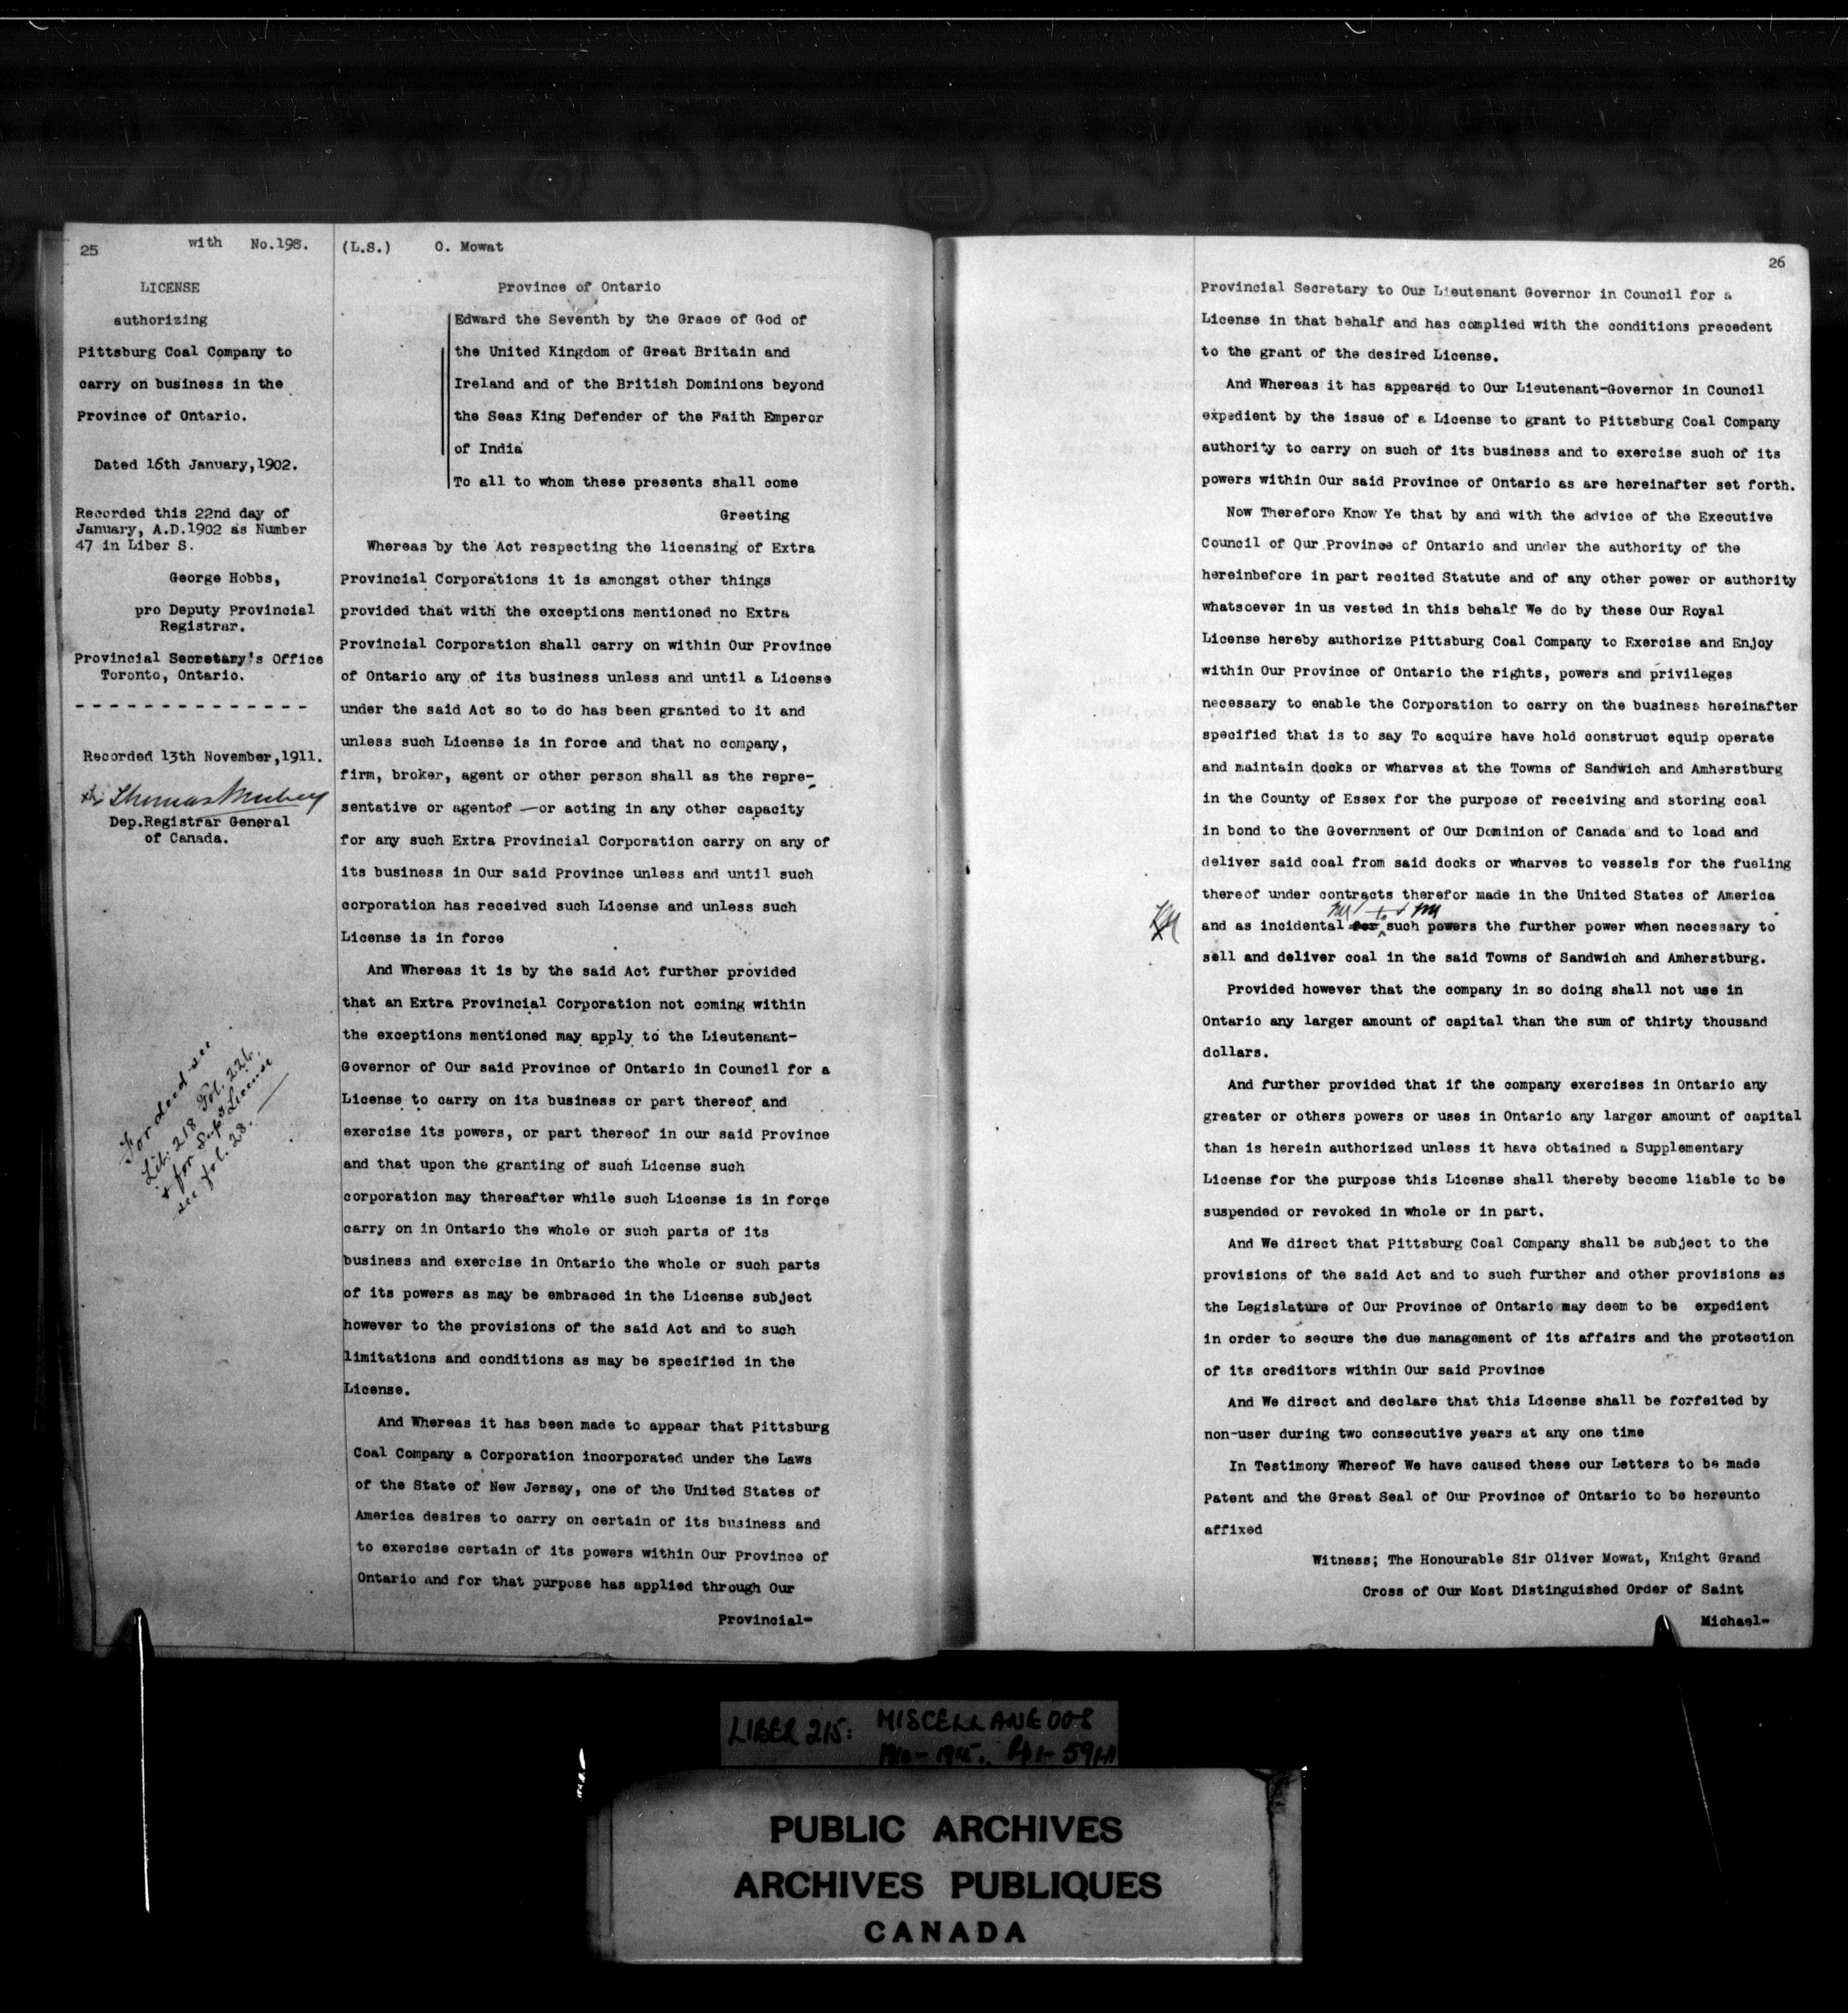 25
with No.198.
LICENSE
authorizing
Pittsburg Coal Company to
carry on business in the
Province of Ontario.
Dated 16th January,1902.
Recorded this 22nd day of
January, A.D.1902 as Number
47 in Liber S.
George Hobbs,
pro Deputy Provincial
Registrar.
Provincial Secretary's Office
Toronto, Ontario.
- - - - - - - - - - - - - -
Recorded 13th November,1911.
Thomas Mulvey
Dep.Registrar General
of Canada.
For deed see
Lib. 218 Fol. 226.
+ for Sup. License
see fol. 28.
(L.S.) O. Mowat
Province of Ontario
Edward the Seventh by the Grace of God of
the United Kingdom of Great Britain and
Ireland and of the British Dominions beyond
the Seas King Defender of the Faith Emperor
of India
To all to whom these presents shall come
Greeting
Whereas by the Act respecting the licensing of Extra
Provincial Corporations it is amongst other things
provided that with the exceptions mentioned no Extra
Provincial Corporation shall carry on within Our Province
of Ontario any of its business unless and until a License
under the said Act so to do has been granted to it and
unless such License is in force and that no company,
firm, broker, agent or other person shall as the repre-
sentative or agentof —or acting in any other capacity
for any such Extra Provincial Corporation carry on any of
its business in Our said Province unless and until such
corporation has received such License and unless such
License is in force
And Whereas it is by the said Act further provided
that an Extra Provincial Corporation not coming within
the exceptions mentioned may apply to the Lieutenant-
Governor of Our said Province of Ontario in Council for a
License to carry on its business or part thereof and
exercise its powers, or part thereof in our said Province
and that upon the granting of such License such
corporation may thereafter while such License is in force
carry on in Ontario the whole or such parts of its
business and exercise in Ontario the whole or such parts
of its powers as may be embraced in the License subject
however to the provisions of the said Act and to such
limitations and conditions as may be specified in the
License.
And Whereas it has been made to appear that Pittsburg
Coal Company a Corporation incorporated under the Laws
of the State of New Jersey, one of the United States of
America desires to carry on certain of its business and
to exercise certain of its powers within Our Province of
Ontario and for that purpose has applied through Our
Provincial-
26
Provincial Secretary to Our Lieutenant Governor in Council for a
License in that behalf and has complied with the conditions precedent
to the grant of the desired License.
And Whereas it has appeared to Our Lieutenant-Governor in Council
expedient by the issue of a License to grant to Pittsburg Coal Company
authority to carry on such of its business and to exercise such of its
powers within Our said Province of Ontario as are hereinafter set forth.
Now Therefore Know Ye that by and with the advice of the Executive
Council of Our Province of Ontario and under the authority of the
hereinbefore in part recited Statute and of any other power or authority
whatsoever in us vested in this behalf We do by these Our Royal
License hereby authorize Pittsburg Coal Company to Exercise and Enjoy
within Our Province of Ontario the rights, powers and privileges
necessary to enable the Corporation to carry on the business hereinafter
specified that is to say To acquire have hold construct equip operate
and maintain docks or wharves at the Towns of Sandwich and Amherstburg
in the County of Essex for the purpose of receiving and storing coal
in bond to the Government of Our Dominion of Canada and to load and
deliver said coal from said docks or wharves to vessels for the fueling
thereof under contracts therefor made in the United States of America
and as incidental to such powers the further power when necessary to
sell and deliver coal in the said Towns of Sandwich and Amherstburg.
Provided however that the company in so doing shall not use in
Ontario any larger amount of capital than the sum of thirty thousand
dollars.
And further provided that if the company exercises in Ontario any
greater or others powers or uses in Ontario any larger amount of capital
than is herein authorized unless it have obtained a Supplementary
License for the purpose this License shall thereby become liable to be
suspended or revoked in whole or in part.
And We direct that Pittsburg Coal Company shall be subject to the
provisions of the said Act and to such further and other provisions as
the Legislature of Our Province of Ontario may deem to be expedient
in order to secure the due management of its affairs and the protection
of its creditors within Our said Province
And We direct and declare that this License shall be forfeited by
non-user during two consecutive years at any one time
In Testimony Whereof We have caused these our Letters to be made
Patent and the Great Seal of Our Province of Ontario to be hereunto
affixed
Witness; The Honourable Sir Oliver Mowat, Knight Grand
Cross of Our Most Distinguished Order of Saint
Michael-
LIBER 215: MISCELLANEOUS
PUBLIC ARCHIVES
ARCHIVES PUBLIQUES
CANADA